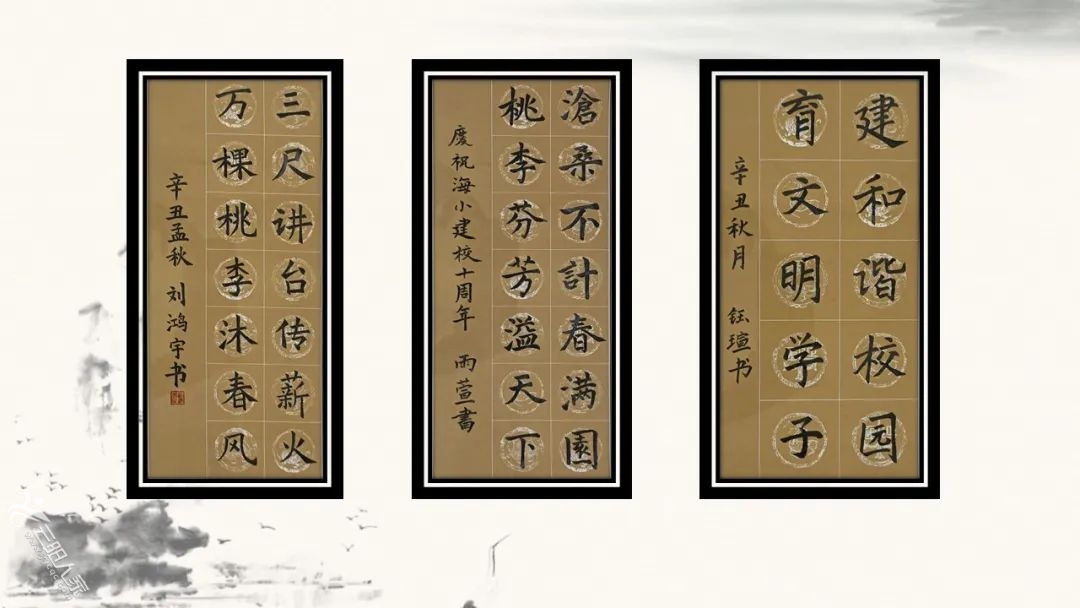 三尺讲台传薪火
万棵桃李沐春风
辛丑孟秋 刘鸿宇书
滄桑不計春满園
桃李芬芳溢天下
慶祝海小建校十周年 雨萱書
建和谐校园
育文明学子
辛丑秋月 钰瑄书
云阳人家